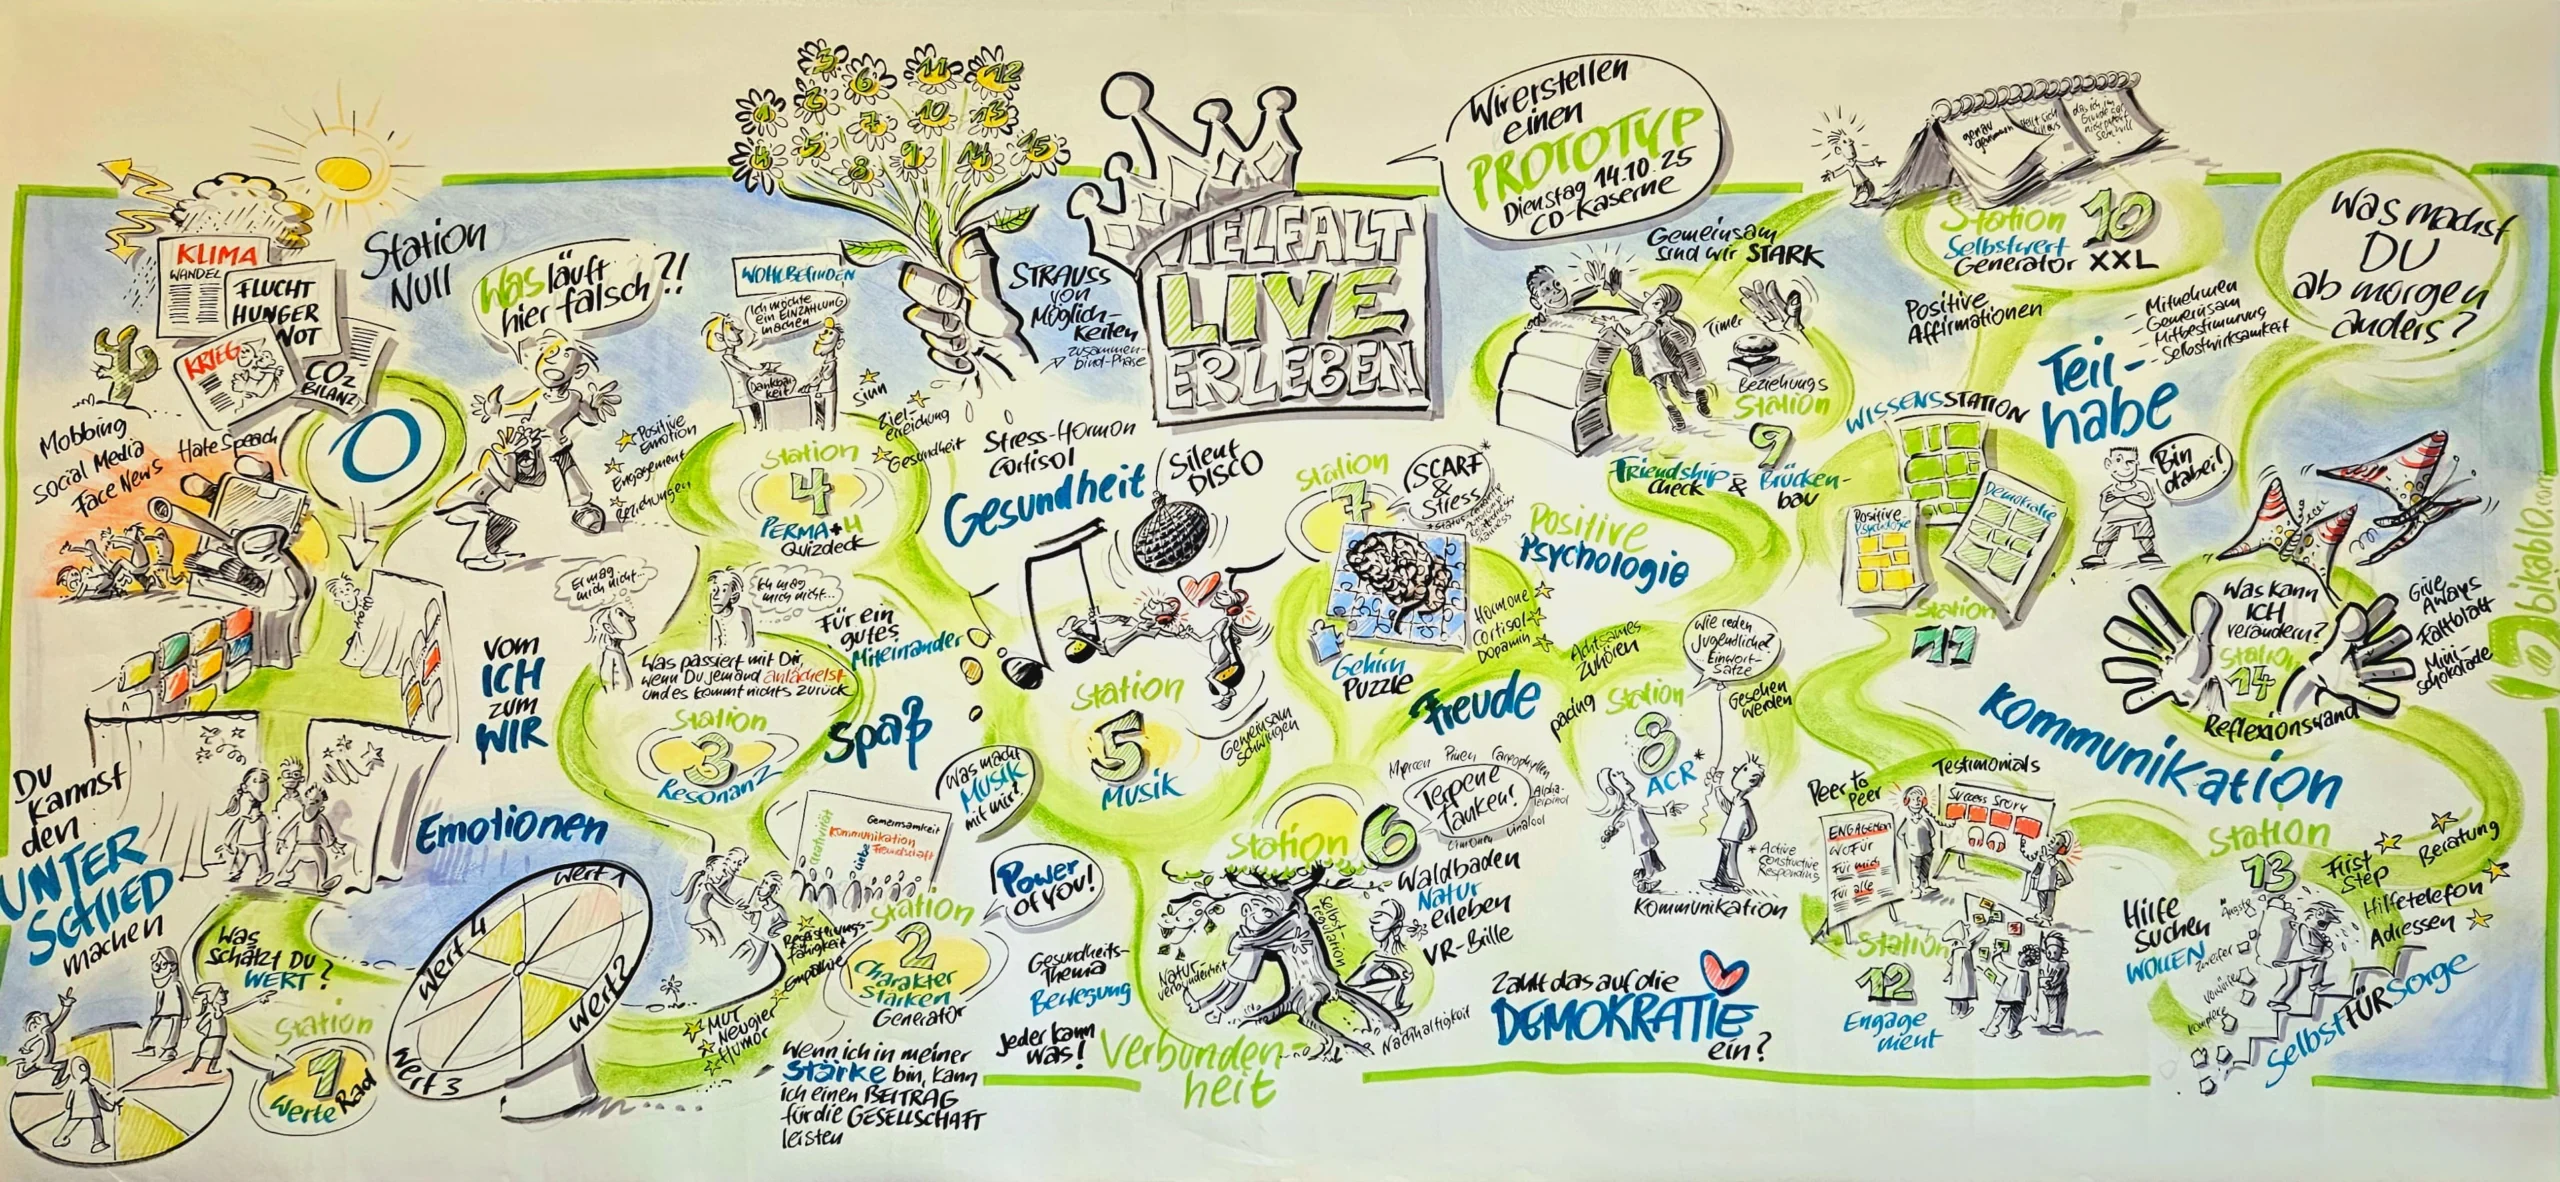 KLIMA
WANDEL
FLUCHT
HUNGER
NOT
KRIEG
CO2
BILANZ
Mobbing
Social Media
Face News
Hate Speech
Station
NULL
0
Was läuft
hier falsch?!
Du
kannst
den
UNTER
SCHIED
machen
Was
schätzt DU
WERT?
Station
1
Werte Rad
Wert 1
Wert 2
Wert 3
Wert 4
Emotionen
vom
ICH
zum
WIR
Er mag
mich nicht...
Ich mag
mich nicht...
Für ein
gutes
Miteinander
Was passiert mit Dir,
wenn Du jemand anlächelst
und es kommt nichts zurück
Station
3
Resonanz
Spaß
WOHLBEFINDEN
Ich möchte
ein EINZAHLUNG
machen
Dankbar-
keit
Positive
Emotion
Engagement
Beziehungen
Sinn
Ziel-
erreichung
Gesundheit
Station
4
PERMA+4
Quizdeck
Kreativität
Gemeinsamkeit
Kommunikation
Liebe
Freundschaft
Station
2
Charakter
Stärken
Generator
Registrierungs-
fähigkeit
Empathie
Mut
Neugier
Humor
Wenn ich in meiner
Stärke bin, kann
ich einen BEITRAG
für die GESELLSCHAFT
leisten
Power
of you!
Was macht
MUSIK
mit mir?
Gesundheits-
Thema
Bewegung
Jeder kann
was!
1
2
3
4
5
6
7
8
9
10
11
12
13
14
15
STRAUSS
von
Möglich-
keiten
zusammen-
bind-Phase
VIELFALT
LIVE
ERLEBEN
Wir erstellen
einen
PROTOTYP
Dienstag 14.10.25
CD-Kaserne
Stress-Hormon
Cortisol
Gesundheit
Silent
DISCO
Station
5
Musik
Gemeinsam
schwingen
Station
7
SCARF*
&
Stress
Gehirn
Puzzle
Hormone
Cortisol
Dopamin
Positive
Psychologie
Freude
Station
6
Myrcen Pinen Caryophyllen
Terpene
tanken!
Alpha-
Terpinol
Limonen Linalool
Waldbaden
Natur
erleben
VR-Brille
Natur-
verbundenheit
Selbst
regulation
Nachhaltigkeit
Verbunden-
heit
Gemeinsam
sind wir STARK
Timer
Beziehungs
Station
9
Friendship-
Check & Brücken-
bau
Achtsames
Zuhören
pacing
Wie reden
Jugendliche?
Einwort-
Sätze
Gesehen
werden
Station
8
ACR*
*Active
Constructive
Responding
Kommunikation
Zahlt das auf die
DEMOKRATIE
ein?
Station 10
Selbstwert
Generator XXL
Positive
Affirmationen
- Mitnehmen
- Gemeinsam
- Mitbestimmung
- Selbstwirksamkeit
Teil-
habe
Bin
dabei!
WISSENSSTATION
Positive
Psychologie
Demokratie
Station
11
Kommunikation
Peer to
Peer
Testimonials
Success Story
ENGAGEMENT
WOFÜR
Für mich
Für alle
Station
12
Engage
ment
Was machst
DU
ab morgen
anders?
Was kann
ICH
verändern?
Station
14
Reflexionswand
Give
Aways
Faltblatt
Mini-
schokolade
Station
13
First
Step
Beratung
Hilfetelefon
Adressen
Hilfe
Suchen
WOLLEN
Ängste
Zweifel
Vorwürfe
Komplexe
SelbstFÜRsorge
@bikablo.com